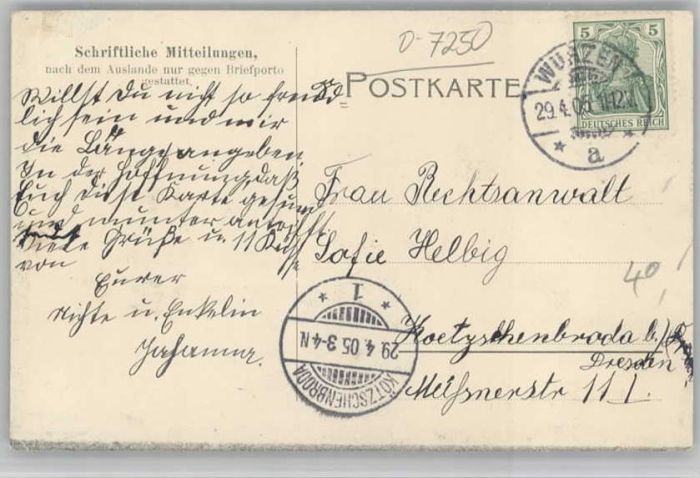 D-7250
Schriftliche Mitteilungen,
nach dem Auslande nur gegen Briefporto
gestattet.
POSTKARTE
5 5
DEUTSCHES REICH
WURZEN
29.4.05 11-12V.
* a *
Willst du nicht so freund
lich sein und mir
die Länge angeben.
In der Hoffnung, daß
Euch diese Karte gesund
und munter antrifft
Viele Grüße u. 11 Küsse
von
Eurer
Nichte u. Enkelin
Johanna.
Frau Rechtsanwalt
Sofie Helbig
40
Koetzschenbroda b/
Dresden
Meißnerstr 11 I.
* 1 *
29.4.05 3-4N
KÖTZSCHENBRODA